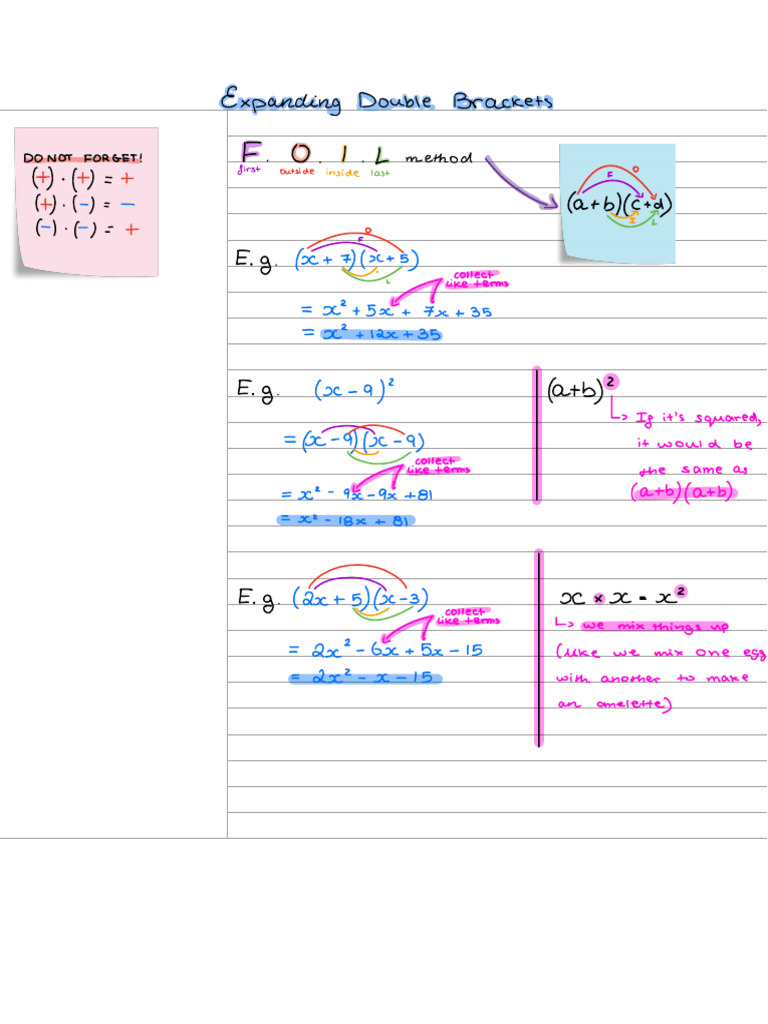 Expanding Double Brackets
DO NOT FORGET!
(+) · (+) = +
(+) · (−) = −
(−) · (−) = +
F. O. I. L method
first outside inside last
O
F
(a+b)(c+d)
I
L
E.g. (x + 7)(x + 5)
O
F
I
L
collect
like terms
= x² + 5x + 7x + 35
= x² + 12x + 35
E.g. (x − 9)²
= (x − 9)(x − 9)
collect
like terms
= x² − 9x − 9x + 81
= x² − 18x + 81
(a+b)²
↳ If it's squared,
it would be
the same as
(a+b)(a+b)
E.g. (2x + 5)(x − 3)
collect
like terms
= 2x² − 6x + 5x − 15
= 2x² − x − 15
x × x = x²
↳ we mix things up
(like we mix one egg
with another to make
an omelette)